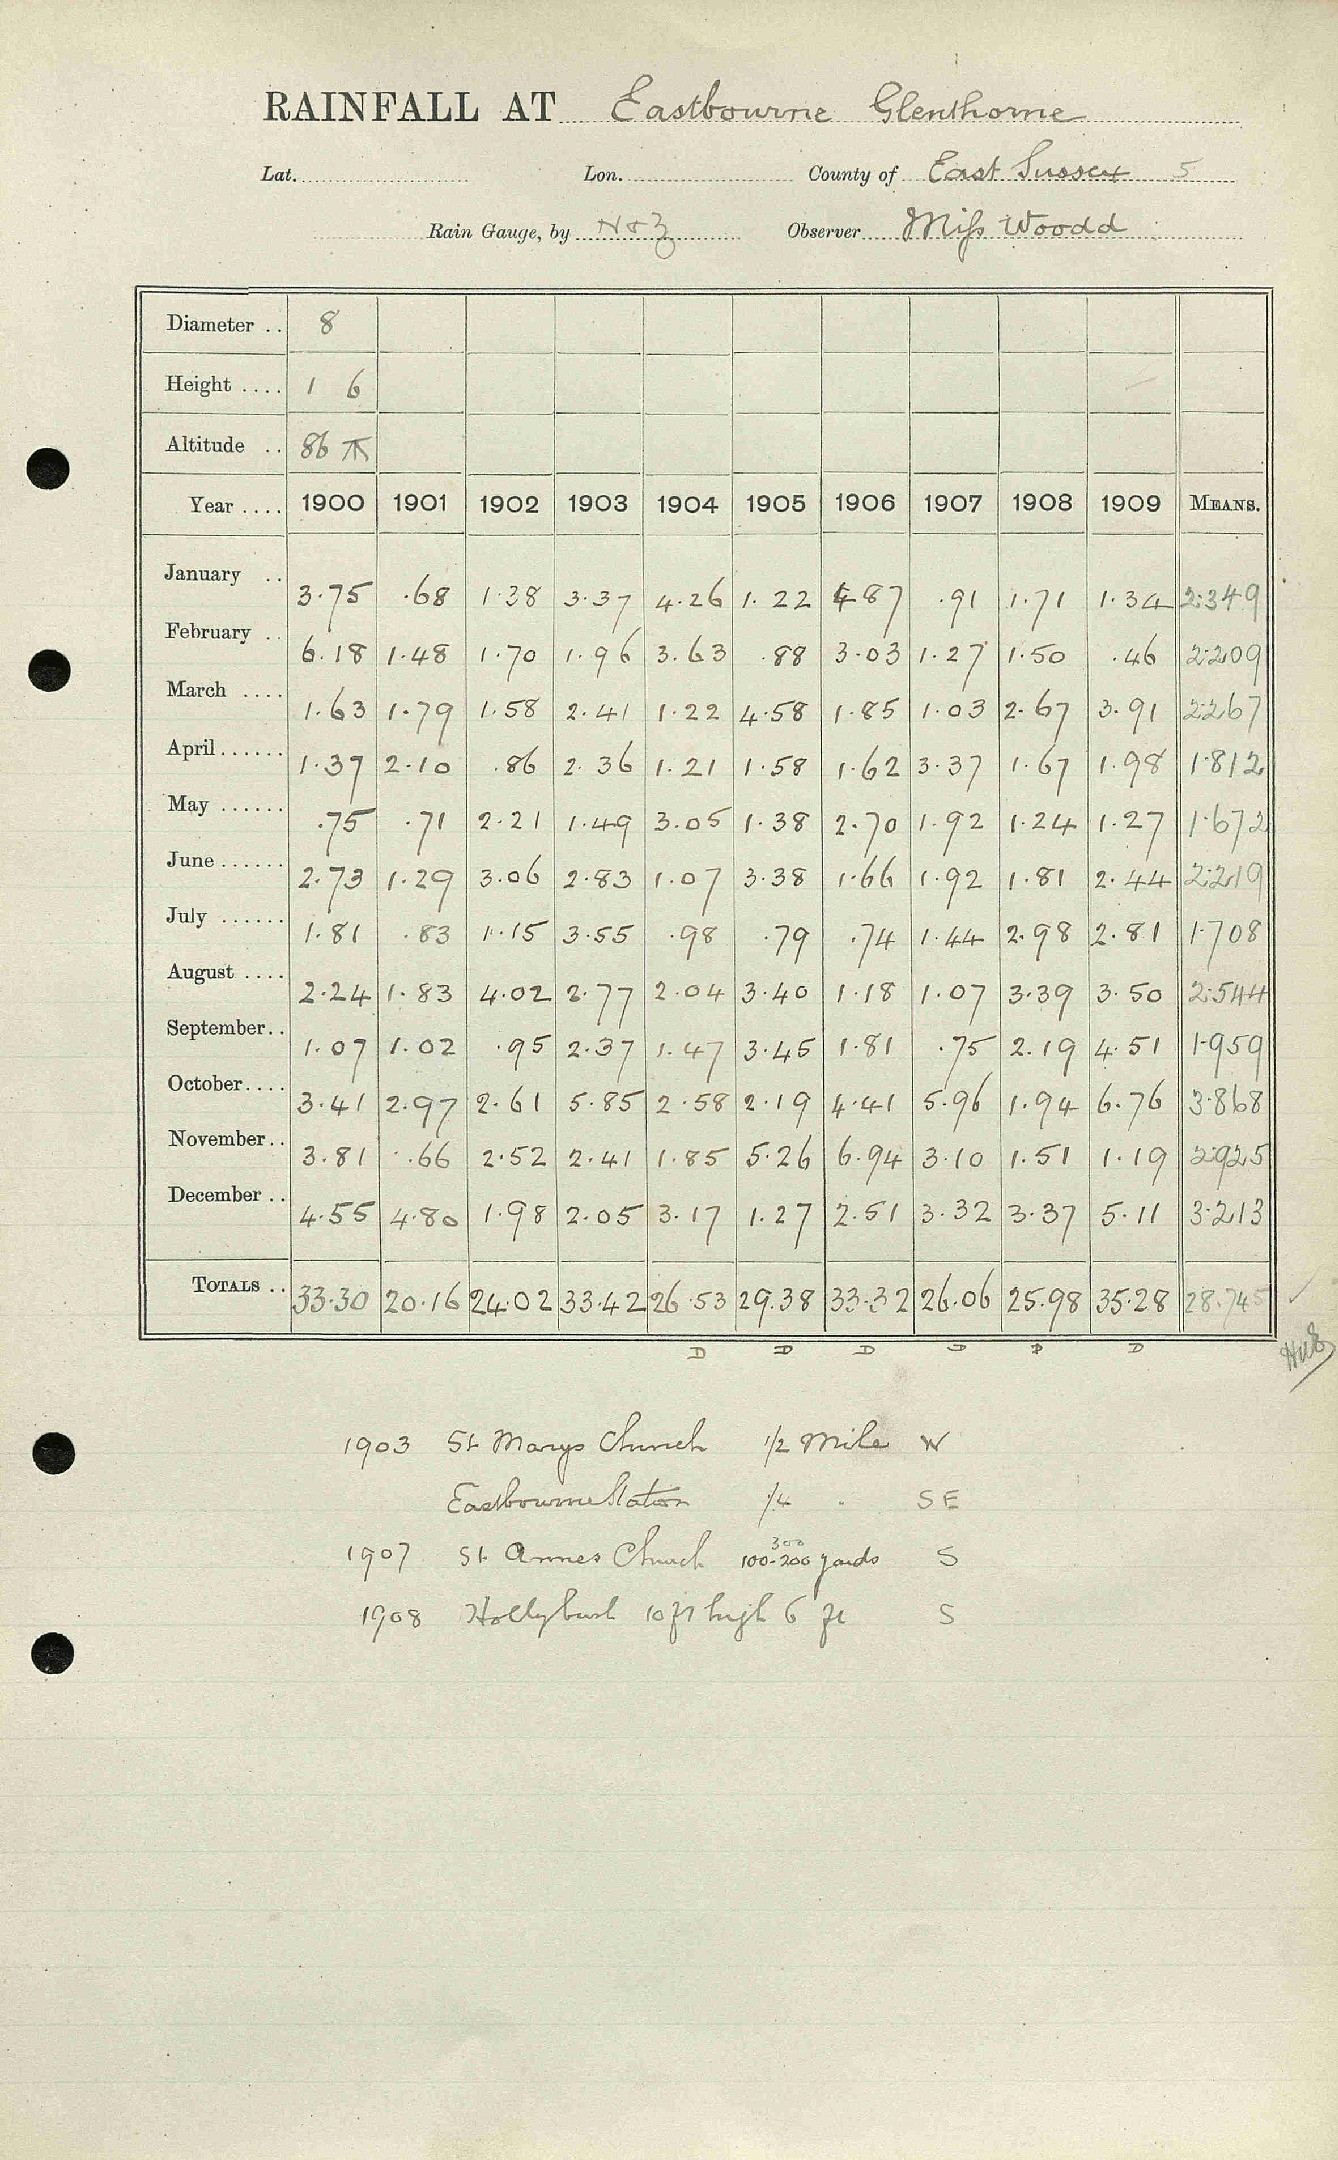 RAINFALL AT Eastbourne Glenthorne
Lat. Lon. County of East Sussex 5
Rain Gauge, by N & Z Observer Miss Woodd
Diameter .. 8
Height .... 1 6
Altitude .. 86
Year .... 1900 1901 1902 1903 1904 1905 1906 1907 1908 1909 MEANS.
January .. 3.75 .68 1.38 3.37 4.26 1.22 4.87 .91 1.71 1.34 2.349
February .. 6.18 1.48 1.70 1.96 3.63 .88 3.03 1.27 1.50 .46 2.209
March .... 1.63 1.79 1.58 2.41 1.22 4.58 1.85 1.03 2.67 3.91 2.267
April ...... 1.37 2.10 .86 2.36 1.21 1.58 1.62 3.37 1.67 1.98 1.812
May ...... .75 .71 2.21 1.49 3.05 1.38 2.70 1.92 1.24 1.27 1.672
June ...... 2.73 1.29 3.06 2.83 1.07 3.38 1.66 1.92 1.81 2.44 2.219
July ...... 1.81 .83 1.15 3.55 .98 .79 .74 1.44 2.98 2.81 1.708
August .... 2.24 1.83 4.02 2.77 2.04 3.40 1.18 1.07 3.39 3.50 2.544
September.. 1.07 1.02 .95 2.37 1.47 3.45 1.81 .75 2.19 4.51 1.959
October.... 3.41 2.97 2.61 5.85 2.58 2.19 4.41 5.96 1.94 6.76 3.868
November.. 3.81 .66 2.52 2.41 1.85 5.26 6.94 3.10 1.51 1.19 2.925
December .. 4.55 4.80 1.98 2.05 3.17 1.27 2.51 3.32 3.37 5.11 3.213
TOTALS .. 33.30 20.16 24.02 33.42 26.53 29.38 33.32 26.06 25.98 35.28 28.745
D D D D D D
1903 St Marys Church 1/2 Mile W
Eastbourne Station 1/4 " SE
300
1907 St Annes Church 100-200 yards S
1908 Hollybush 10 ft high 6 ft S